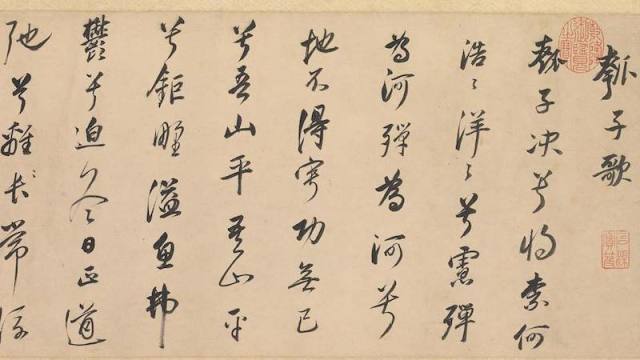 瓠子歌
瓠子决兮將奈何
浩〻洋〻兮慮殫
為河殫為河兮
地不得寧功無已
兮吾山平吾山平
兮鉅野溢魚弗
鬱兮迫冬日正道
弛兮離常流